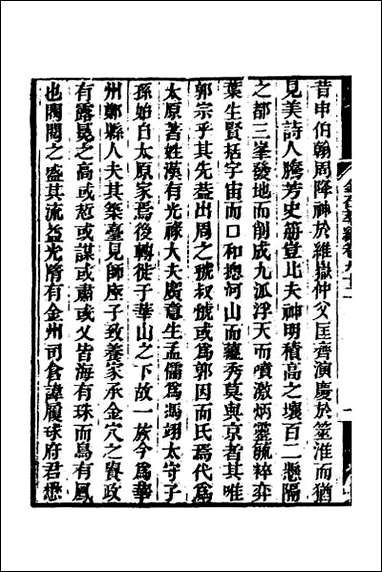 金石萃編卷九十二 一
昔申伯翰周降神於維嶽仲父匡齊演慶於筮淮而猶
見美詩人騰芳史筴豈比夫神明積高之壤百二懸隔
之都三峯發地而削成九派浮天而噴激炳靈毓粹弈
葉生賢括宇宙而口和總河山而蘊秀莫與京者其唯
郭宗乎其先蓋出周之虢叔虢或爲郭因而氏焉代爲
太原著姓漢有光祿大夫廣意生孟儒爲馮翊太守子
孫始自太原家焉後轉徙于華山之下故一族今爲華
州鄭縣人夫其築臺見師座子致養家承金穴之貲政
有露冕之高或悊或謀或肅或乂皆海有珠而鳥有鳳
也閥閱之盛其流益光隋有金州司倉諱履球府君懋